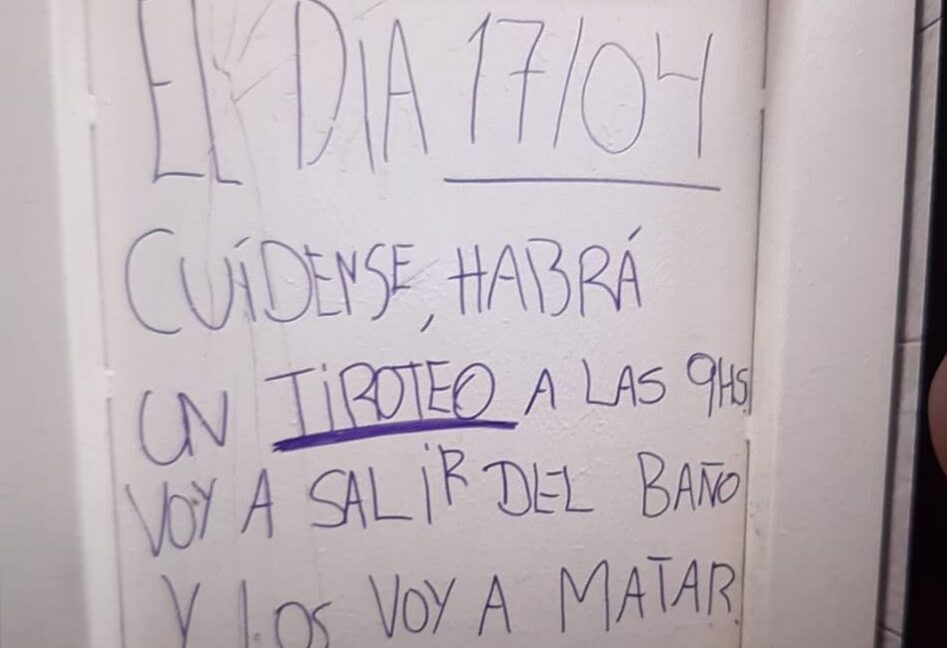 EL DÍA 17/04
CUÍDENSE, HABRÁ
UN TIROTEO A LAS 9HS
VOY A SALIR DEL BAÑO
Y LOS VOY A MATAR